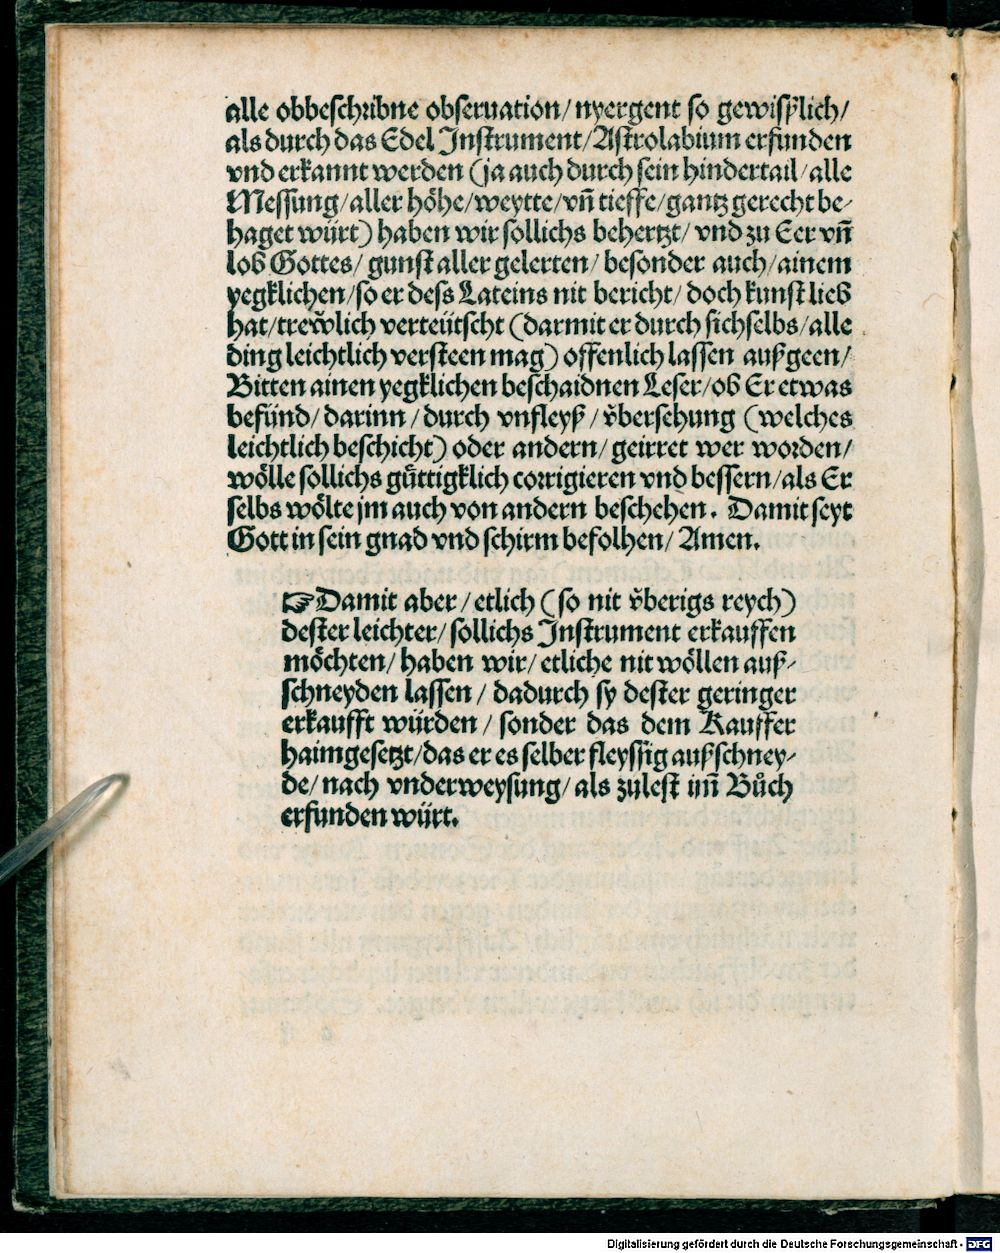 alle obbeschribne obseruation/ nyergent so gewisp̃lich/
als durch das Edel Instrument/ Astrolabium erfunden
vnd erkannt werden (ja auch durch sein hindertail/ alle
Messung/ aller höhe/ weytte/ vñ tieffe/ gantz gerecht be-
haget würt) haben wir sollichs behertzt/ vnd zu Eer vñ
lob Gottes/ gunst aller gelerten/ besonder auch/ ainem
yegklichen/ so er dess Lateins nit bericht/ doch kunst lieb
hat/ trewlich verteütscht (darmit er durch sichselbs/ alle
ding leichtlich versteen mag) offenlich lassen außgeen/
Bitten ainen yegklichen beschaidnen Leser/ ob Er etwas
befünd/ darinn/ durch vnfleyß/ v̈bersehung (welches
leichtlich beschicht) oder andern/ geirret wer worden/
wölle sollichs gu̇ttigklich corrigieren vnd bessern/ als Er
selbs wölte jm auch von andern beschehen. Damit seyt
Gott in sein gnad vnd schirm befolhen/ Amen.
☞Damit aber/ etlich (so nit v̈berigs reych)
dester leichter/ sollichs Instrument erkauffen
möchten/ haben wir/ etliche nit wöllen auß-
schneyden lassen/ dadurch sy dester geringer
erkaufft würden/ sonder das dem Kauffer
haimgesetzt/ das er es selber fleyssig außschney-
de/ nach vnderweysung/ als zulest im̃ Bůch
erfunden würt.
Digitalisierung gefördert durch die Deutsche Forschungsgemeinschaft - DFG